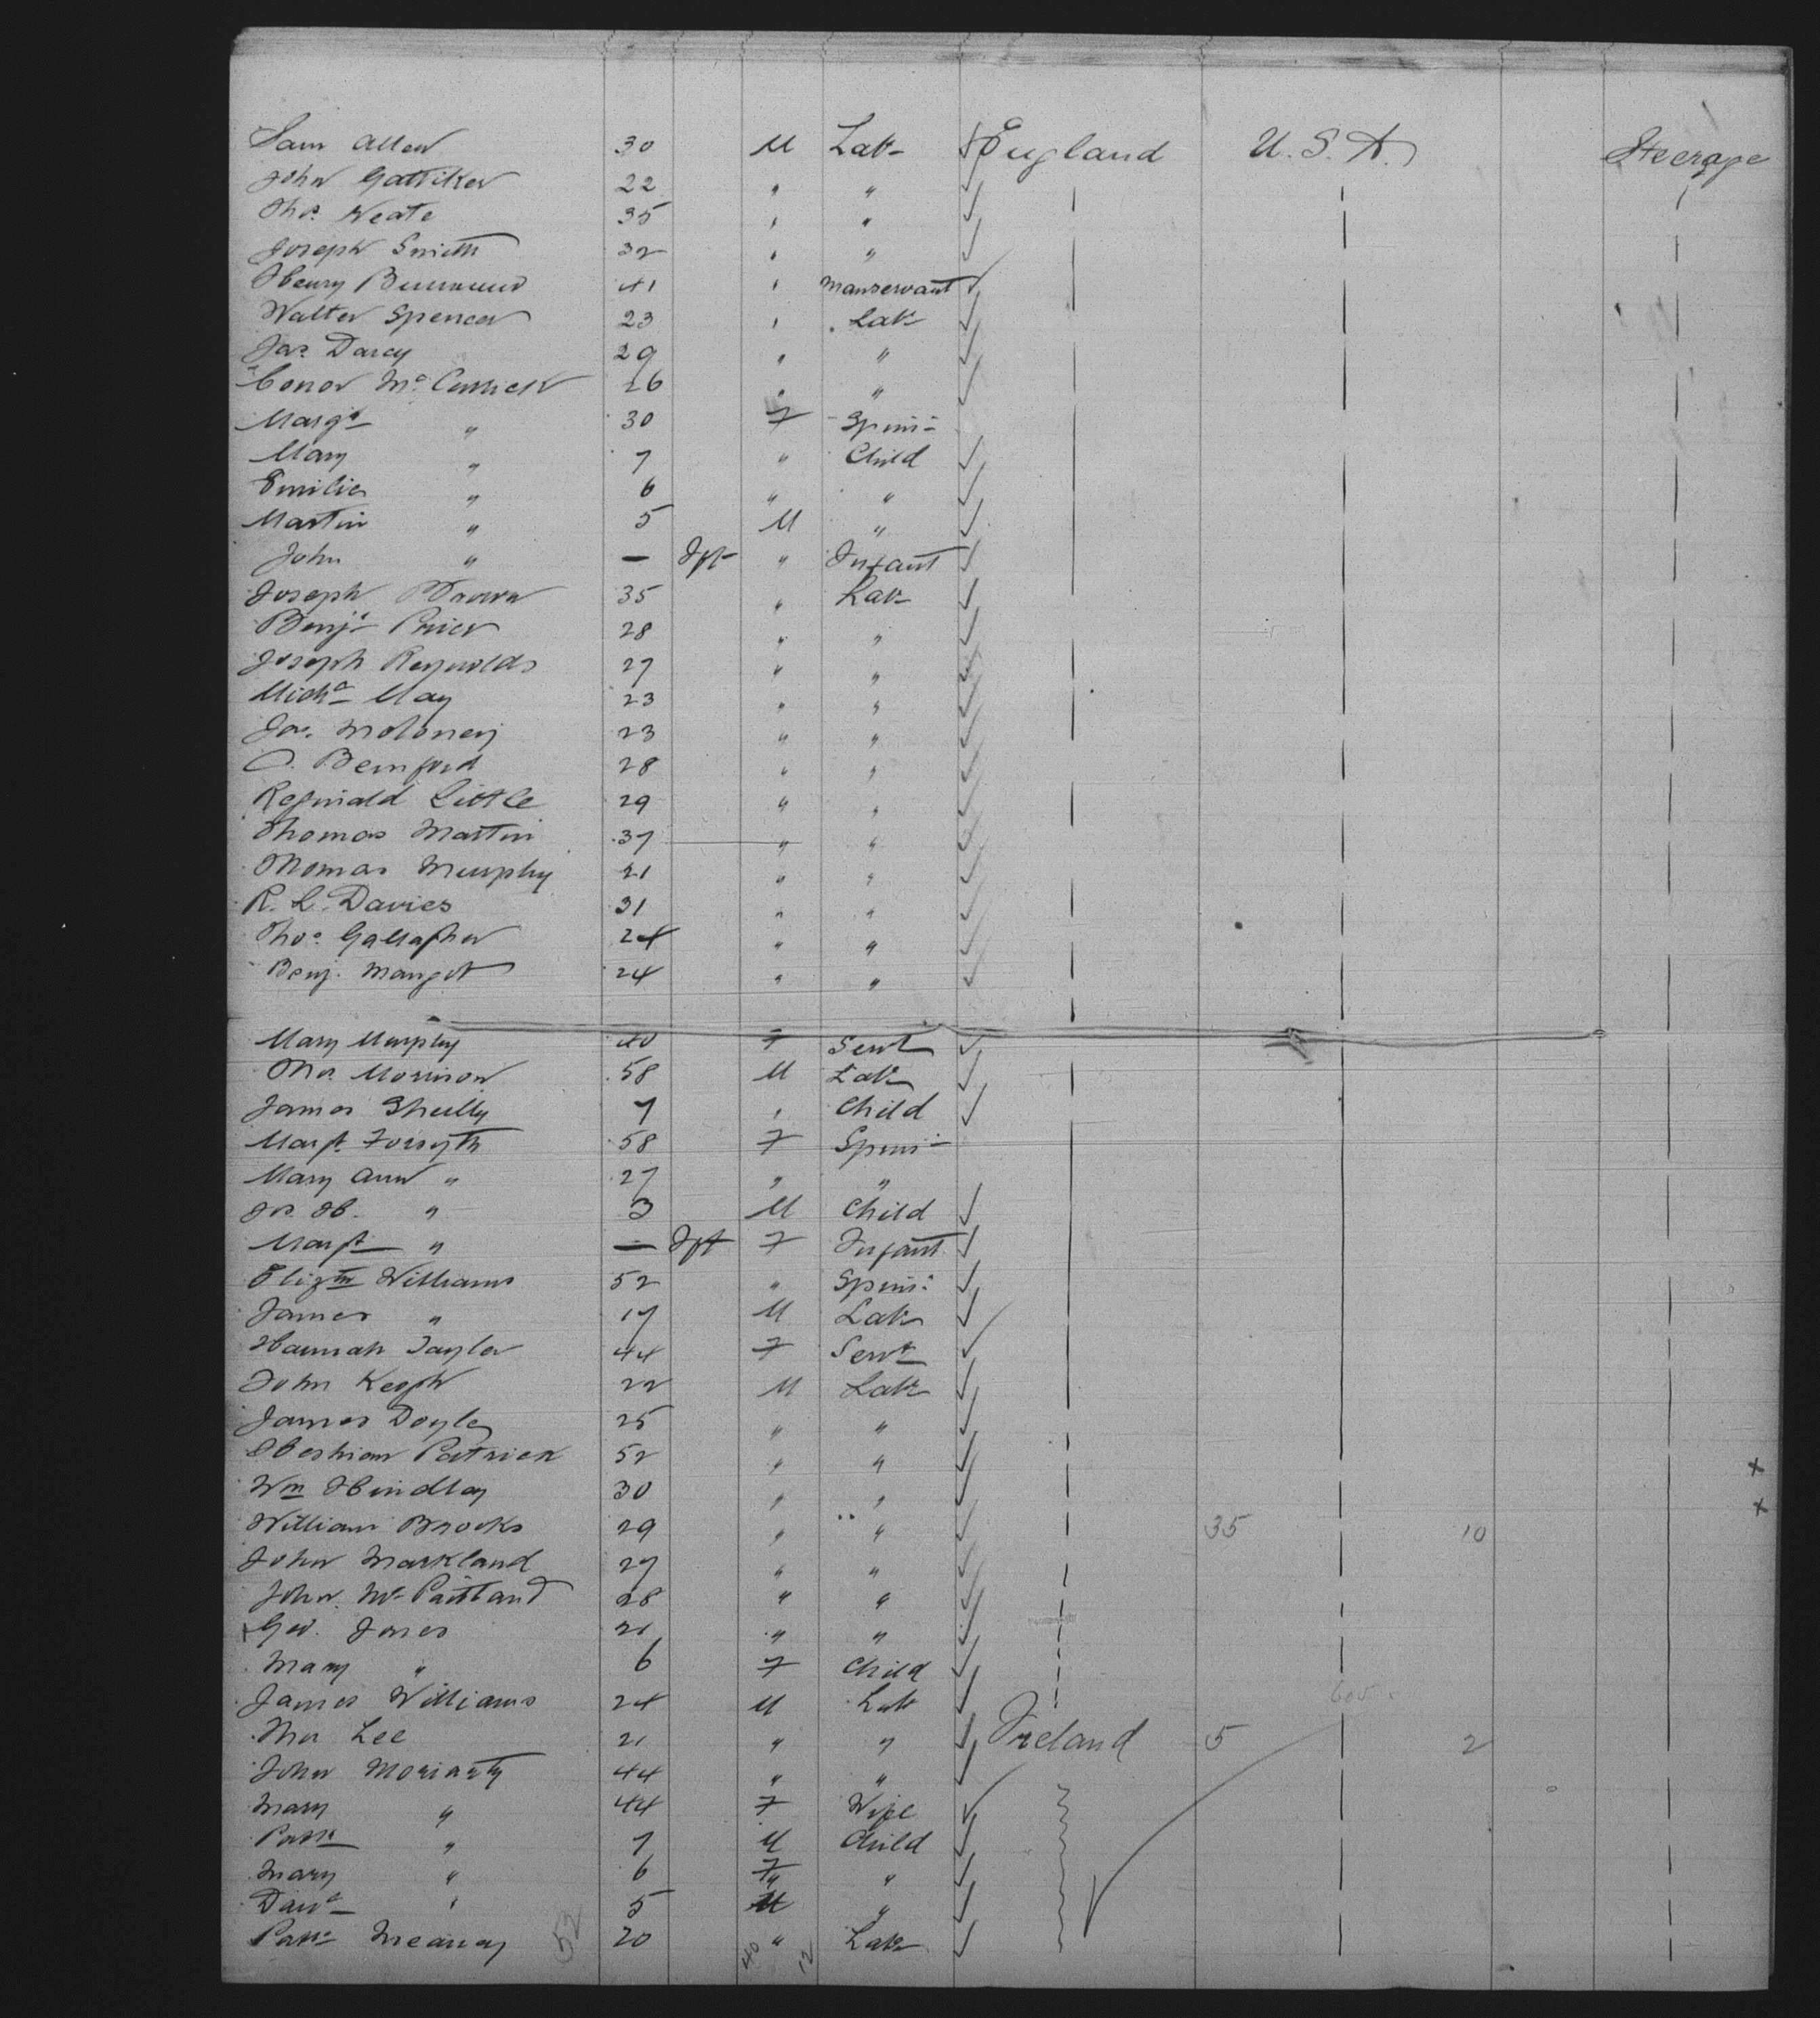 Sam Allen 30 M Labr England U.S.A. Steerage
John Gattiker 22 " "
Thos. Neate 35 " "
Joseph Smith 32 " "
Henry 41 " Manservant
Walter Spencer 23 " Labr
Jas. Darcy 29 " "
Conor McCormick 26 " "
Margt " 30 F Spins
Mary " 7 " Child
Emilie " 6 " "
Martin " 5 M "
John " — Ift " Infant
Joseph Brown 35 " Labr
Benjn Price 28 " "
Joseph Reynolds 27 " "
Michl May 23 " "
Jas. Moloney 23 " "
C. Bernford 28 " "
Reginald Little 29 " "
Thomas Martin 37 " "
Thomas Murphy 21 " "
R. L. Davies 31 " "
Thos. Gallagher 24 " "
Benj. Margot 24 " "
Mary Murphy 40 F Servt
Thos. Morrison 58 M Labr
James Shully 7 " Child
Margt Forsyth 58 F Spins
Mary Ann " 27 " "
Jos. H. " 3 M Child
Margt " — Ift F Infant
Elizth Williams 52 " Spins.
James " 17 M Labr
Hannah Taylor 44 F Servt
John Keogh 22 M Labr
James Doyle 25 " "
Patrick 52 " " x
Wm Hindley 30 " " x
William Brooks 29 " " 35 10
John Markland 27 " "
John McPartland 28 " "
Geo. Jones 21 " "
Mary " 6 F Child
James Williams 24 M Labr
Thos Lee 21 " " Ireland 5 2
John Moriarty 44 " "
Mary " 44 F Wife
Patk " 7 M Child
Mary " 6 F "
Davd " 5 M "
Patk Meaney 20 " Labr
52 40 12